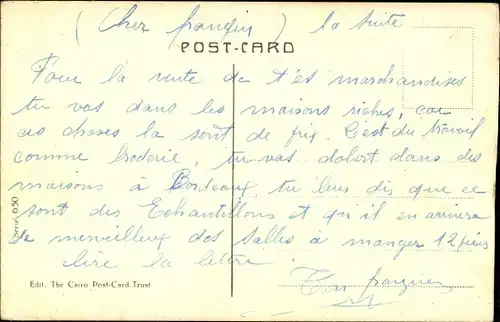 (Cher frangin) la suite
POST-CARD
Pour la vente de t'es marchandises
tu vas dans les maisons riches, car
ces choses la sont de prix. C'est du travail
comme broderie, tu vas dabort dans des
maisons à Bordeaux, tu leur dis que ce
sont des Echantillons et qu'il en arrivera
de merveilleux des salles à manger 12 pièces
lire la lettre
Ton frangin
Serie 650
Edit. The Cairo Post-Card Trust